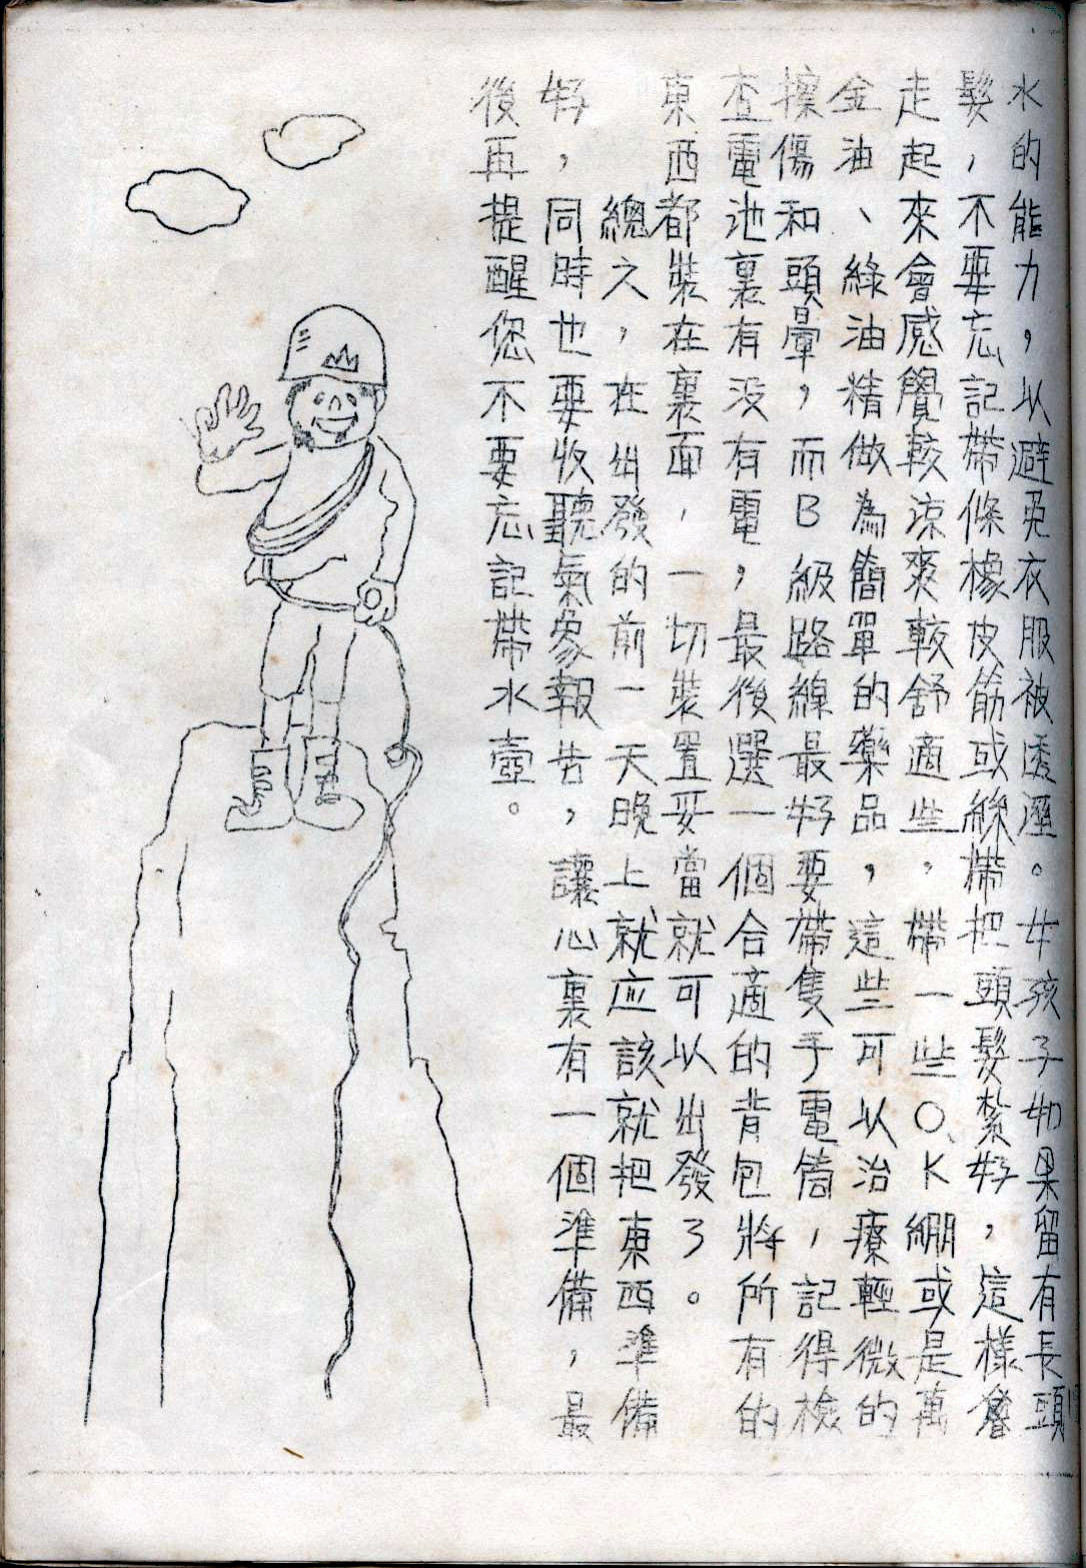 水的能力，以避免衣服被透溼。女孩子如果留有長頭
髮，不要忘記帶條橡皮筋或絲帶把頭髮紮好，這樣會
走起來會感覺較涼爽較舒適些，帶一些OK綳或是萬
金油、綠油精做為簡單的藥品，這些可以治療輕微的
擦傷和頭暈，而B級路線最好要帶隻手電筒，記得檢
查電池裏有沒有電，最後選一個合適的背包將所有的
東西都裝在裏面，一切裝置妥當就可以出發了。
總之，在出發的前一天晚上就应該就把東西準備
好，同時也要收聽氣象報告，讓心裏有一個準備，最
後再提醒您不要忘記帶水壺。